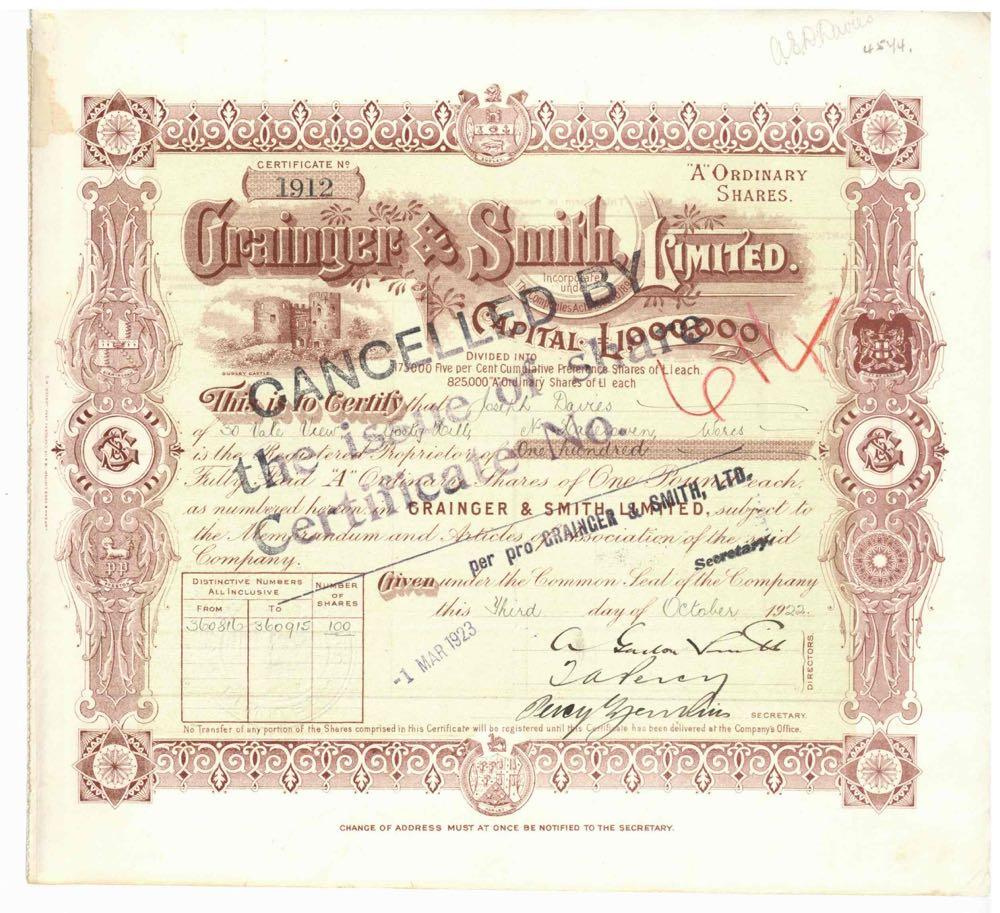 A E D Davies
4544.
CERTIFICATE Nº
1912
"A" ORDINARY
SHARES.
Grainger & Smith, LIMITED.
Incorporated
under
The Companies Acts
CAPITAL £1,000,000
DIVIDED INTO
175,000 Five per Cent Cumulative Preference Shares of £1 each.
825,000 "A" Ordinary Shares of £1 each
DUDLEY CASTLE.
CANCELLED BY
the issue of share
Certificate No
614
This is to Certify that Joseph Davies
of 30 Vale View
is the Registered Proprietor of One hundred
Fully Paid "A" Ordinary Shares of One Pound each,
as numbered hereon in GRAINGER & SMITH, LIMITED, subject to
the Memorandum and Articles of Association of the said
Company.
per pro GRAINGER & SMITH, LTD.
Secretary.
Given under the Common Seal of the Company
this Third day of October 1922.
DISTINCTIVE NUMBERS
ALL INCLUSIVE
NUMBER
OF
SHARES
FROM TO
360816 360915 100
-1 MAR 1923
DIRECTORS.
SECRETARY.
No Transfer of any portion of the Shares comprised in this Certificate will be registered until this Certificate has been delivered at the Company's Office.
CHANGE OF ADDRESS MUST AT ONCE BE NOTIFIED TO THE SECRETARY.